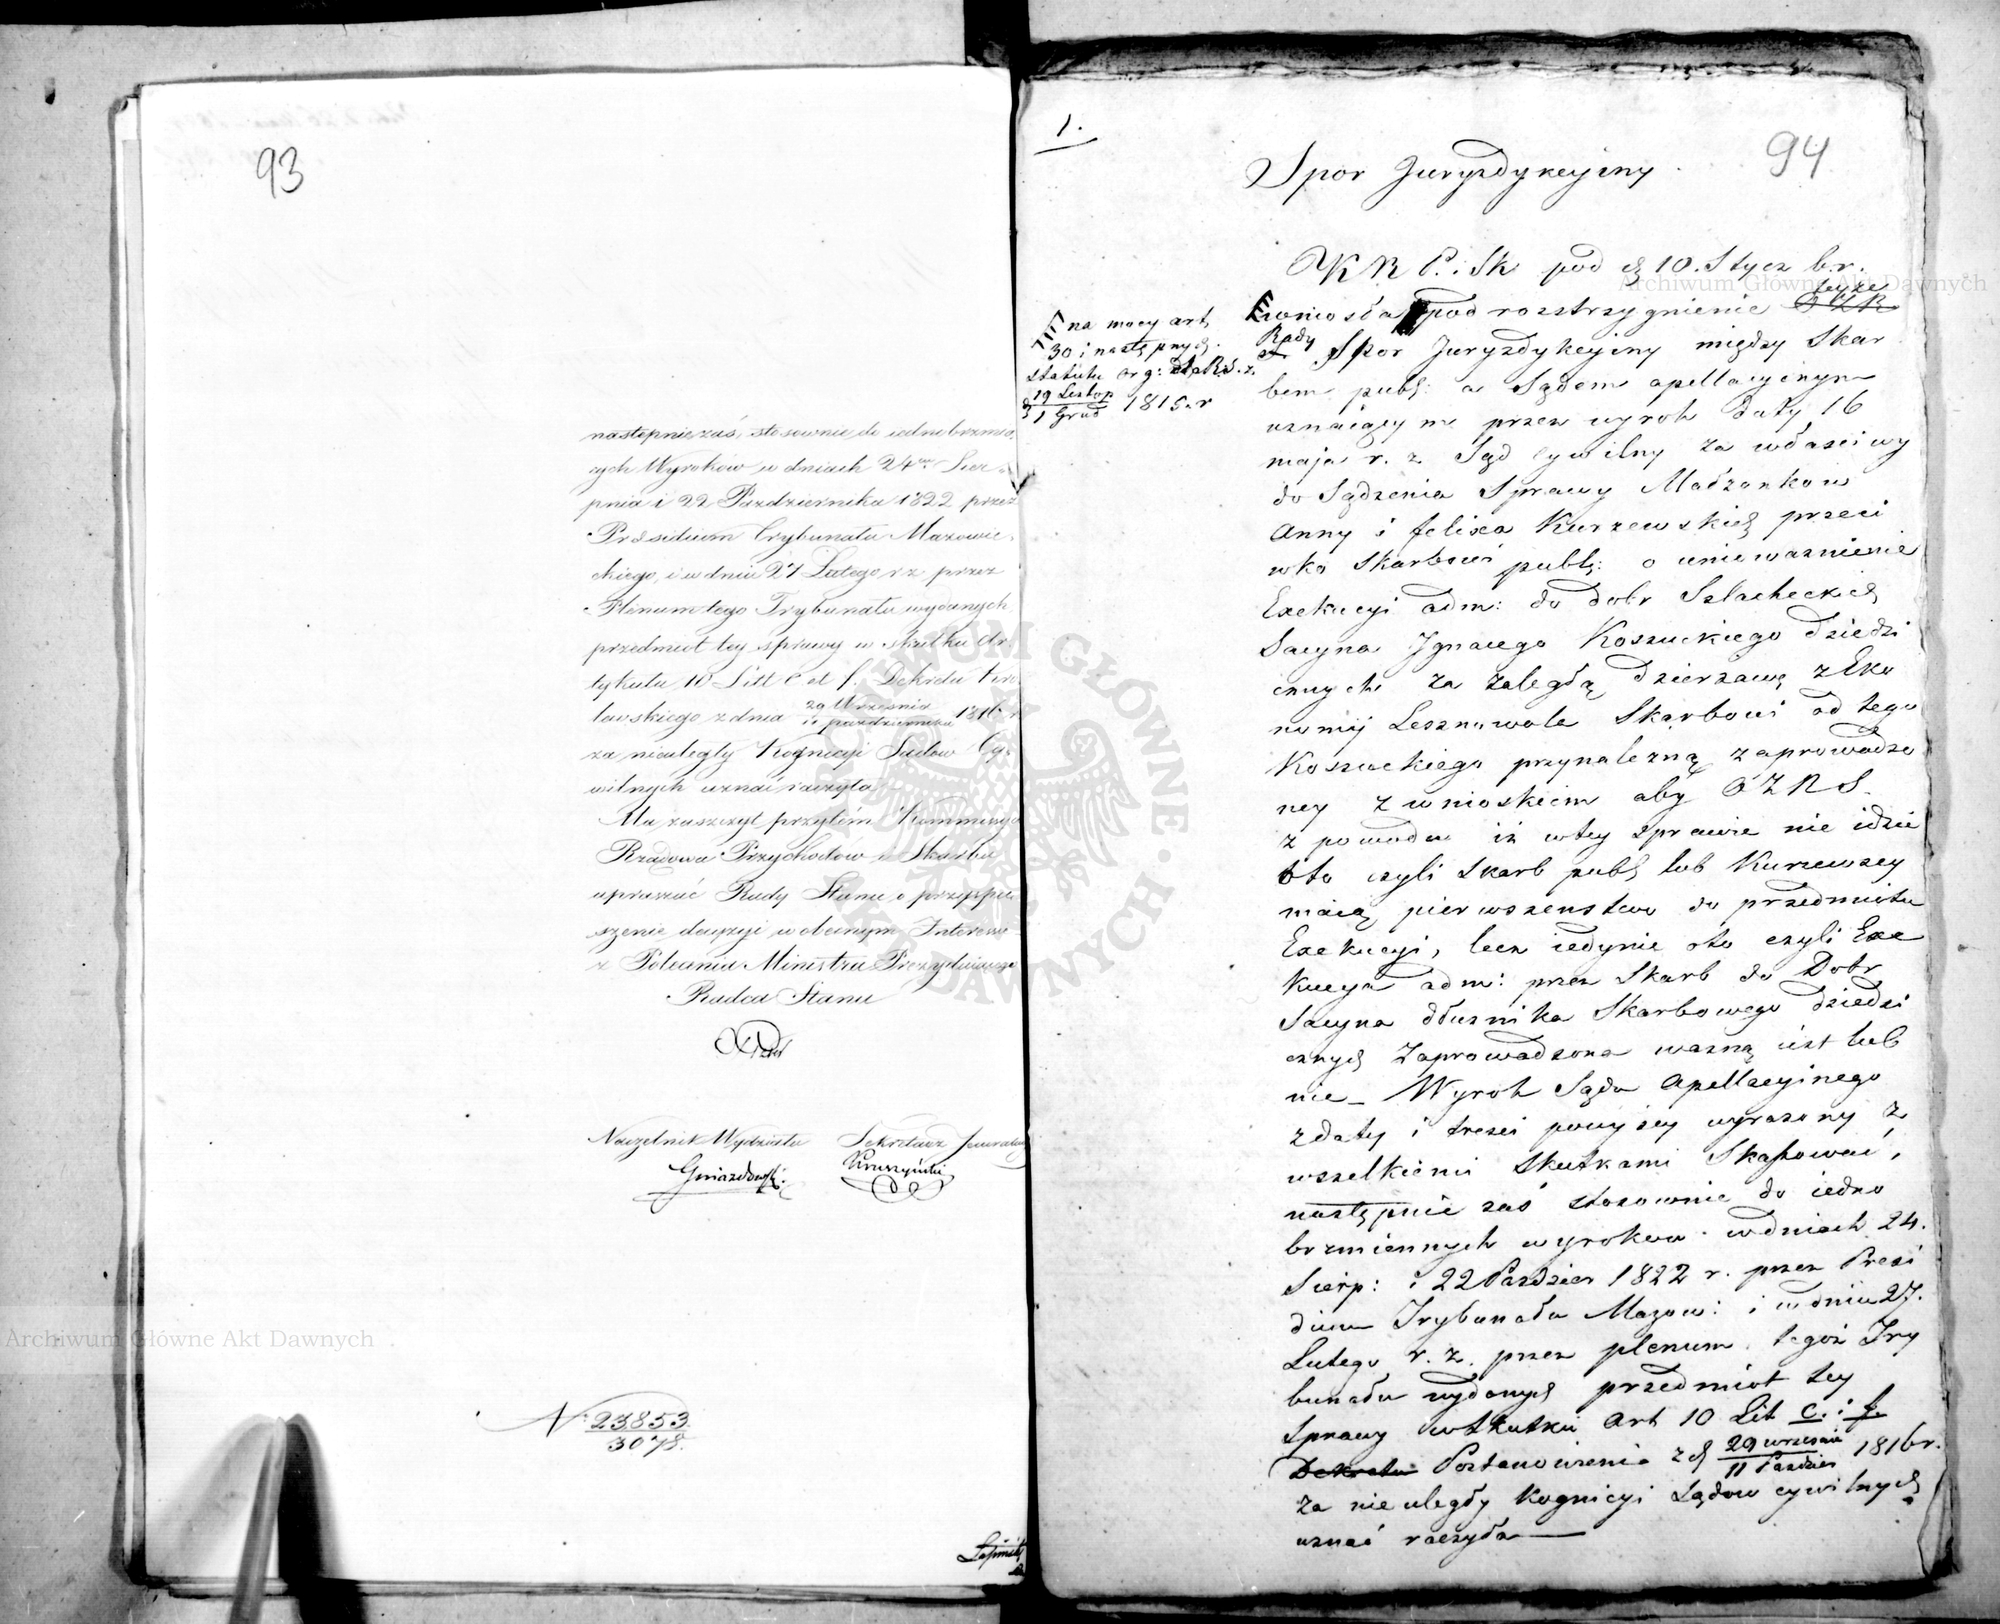 93
następnie zaś, stosownie do iednobrzmią,
cych Wyroków w dniach 24go Sier-
pnia i 22 Pazdziernika 1822 przez
Prezidium Trybunału Mazowie-
ckiego, i w dniu 27 Lutego r z przez
Plenum tego Trybunału wydanych
przedmiot tey sprawy w skutku Ar-
tykułu 10 Litt c et f. Dekretu Kró
lewskiego z dnia 29 Września / 11 pazdziernika 1816 r
za nieuległy Kognicyi Sądów Cy-
wilnych uznać raczyła
Ma zaszczyt przytém Kommissya
Rządowa Przychodów i Skarbu
upraszać Rady Stanu o przyspie
szenie decyzyi w obecnym Interesie
z Polecenia Ministra Prezyduiącego
Radca Stanu
Naczelnik Wydziału Sekretarz Jeneralny
Gniazdowski Kruszyński
N. 23853 / 3078.
1.
94
Spor Juryzdykcyiny
K R P. i Sk pod d 10. Stycz b. r.
wniosła pod rozstrzygnienie teyze O Z R
Rady St Spor Juryzdykcyiny między Skar
bem publ: a Sądem apellacyinym
uznaiącym przez wyrok daty 16
maja r. z Sąd cywilny za właściwy
do Sądzenia Sprawy Małżonków
Anny i felixa Kurzewskich przeci
wko Skarbowi publ: o uniewaznienie
Exekucyi adm: do dobr Szlacheckich
Sacyna Ignacego Koszuckiego dziedzi
cznych za zaległą dzierzawę z Eko
nomij Lesznowola Skarbowi od tego
Koszuckiego przynalezną zaprowadzo
ney z wnioskiem aby O Z R S.
z powodu iz w tey sprawie nie idzie
oto czyli Skarb publ lub Kurzewscy
maią pierwszenstwo do przedmiotu
Exekucyi, lecz iedynie oto czyli Exe
kucya adm: przez Skarb do Dobr
Sacyna dłuznika Skarbowego dziedzi
cznych zaprowadzona wazną iest lub
nie – Wyrok Sądu Apellacyinego
z daty i tresci powyzey wyrazony z
wszelkiemi Skutkami Skassować,
następnie zaś stosownie do iedno
brzmiennych wyroków w dniach 24.
Sierp: i 22 Pazdzier 1822 r. przez Prezi
dium Trybunału Mazow: i w dniu 27.
Lutego r. z. przez plenum tegoz Try
bunału wydanych przedmiot tey
Sprawy w skutku Art 10 Lit c. i f.
Dekretu Postanowienia z d 29 wrzesnia / 11 Pazdzier 1816 r.
za nie uległy Kognicyi Sądow cywilnych
uznać raczyła
na mocy art,
30 i następnych
statutu org: dla R S. z.
d 19 Listop / 1 Grud 1815. r
Archiwum Główne Akt Dawnych
Archiwum Główne Akt Dawnych
ARCHIWUM GŁÓWNE AKT DAWNYCH